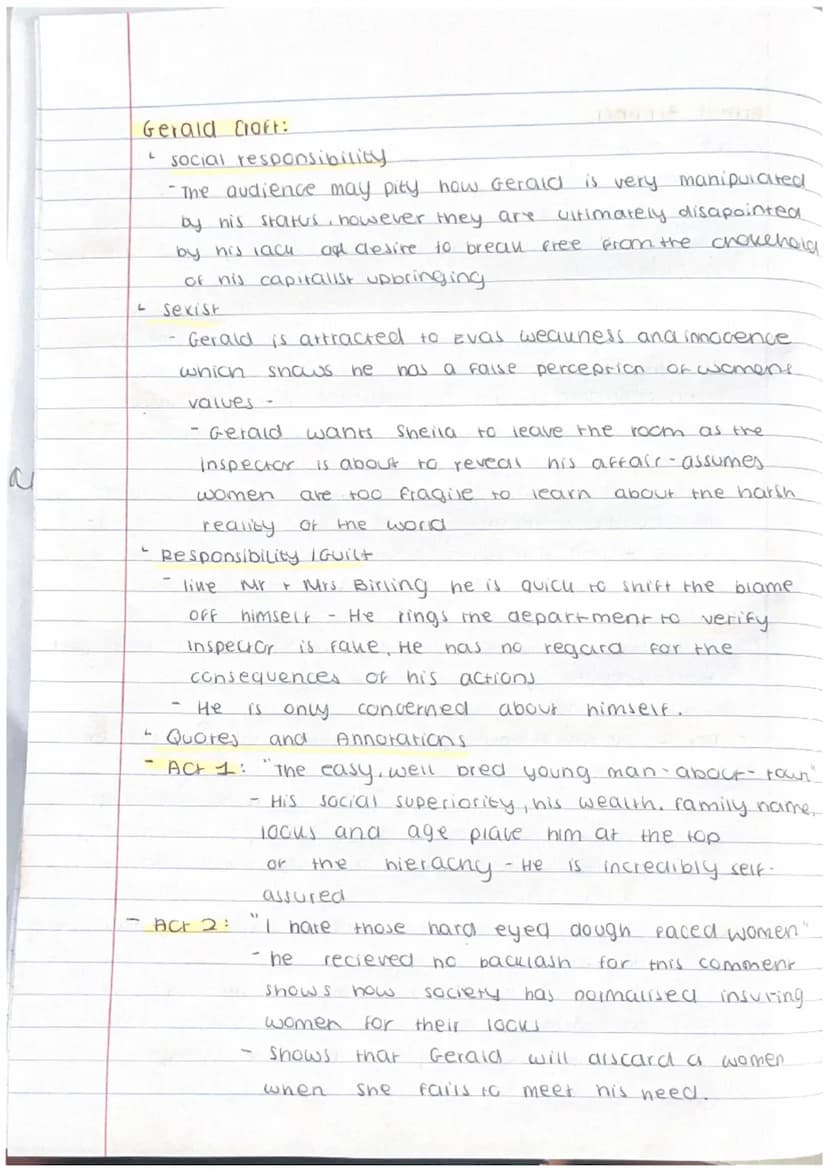 Gerald Croft:
↳ social responsibility
- The audience may pity how Gerald is very manipulated
by his status, however they are ultimately disapointed
by his lack of desire to break free from the chokehold
of his capitalist upbringing
↳ Sexist
- Gerald is attracted to Evas weakness and innocence
which shows he has a false perception of womens
values -
- Gerald wants Sheila to leave the room as the
inspector is about to reveal his affair - assumes
women are too fragile to learn about the harsh
reality of the world
↳ Responsibility / Guilt
- like Mr + Mrs Birling he is quick to shift the blame
off himself - He rings the department to verify
inspector is fake. He has no regard for the
consequences of his actions
- He is only concerned about himself.
↳ Quotes and Annotations
- Act 1: "The easy, well bred young man-about-town"
- His social superiority, his wealth, family name,
looks and age place him at the top
of the hierachy - He is incredibly self-
assured
- Act 2: "I hate those hard eyed dough faced women"
- he recieved no backlash for this comment
shows how society has normalised insulting
women for their looks
- Shows that Gerald will discard a women
when she fails to meet his need.